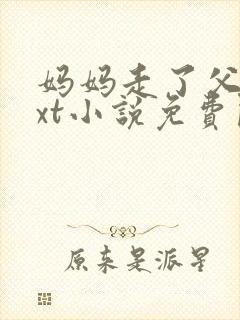 妈妈走了父
xt小説免費
原来是派星